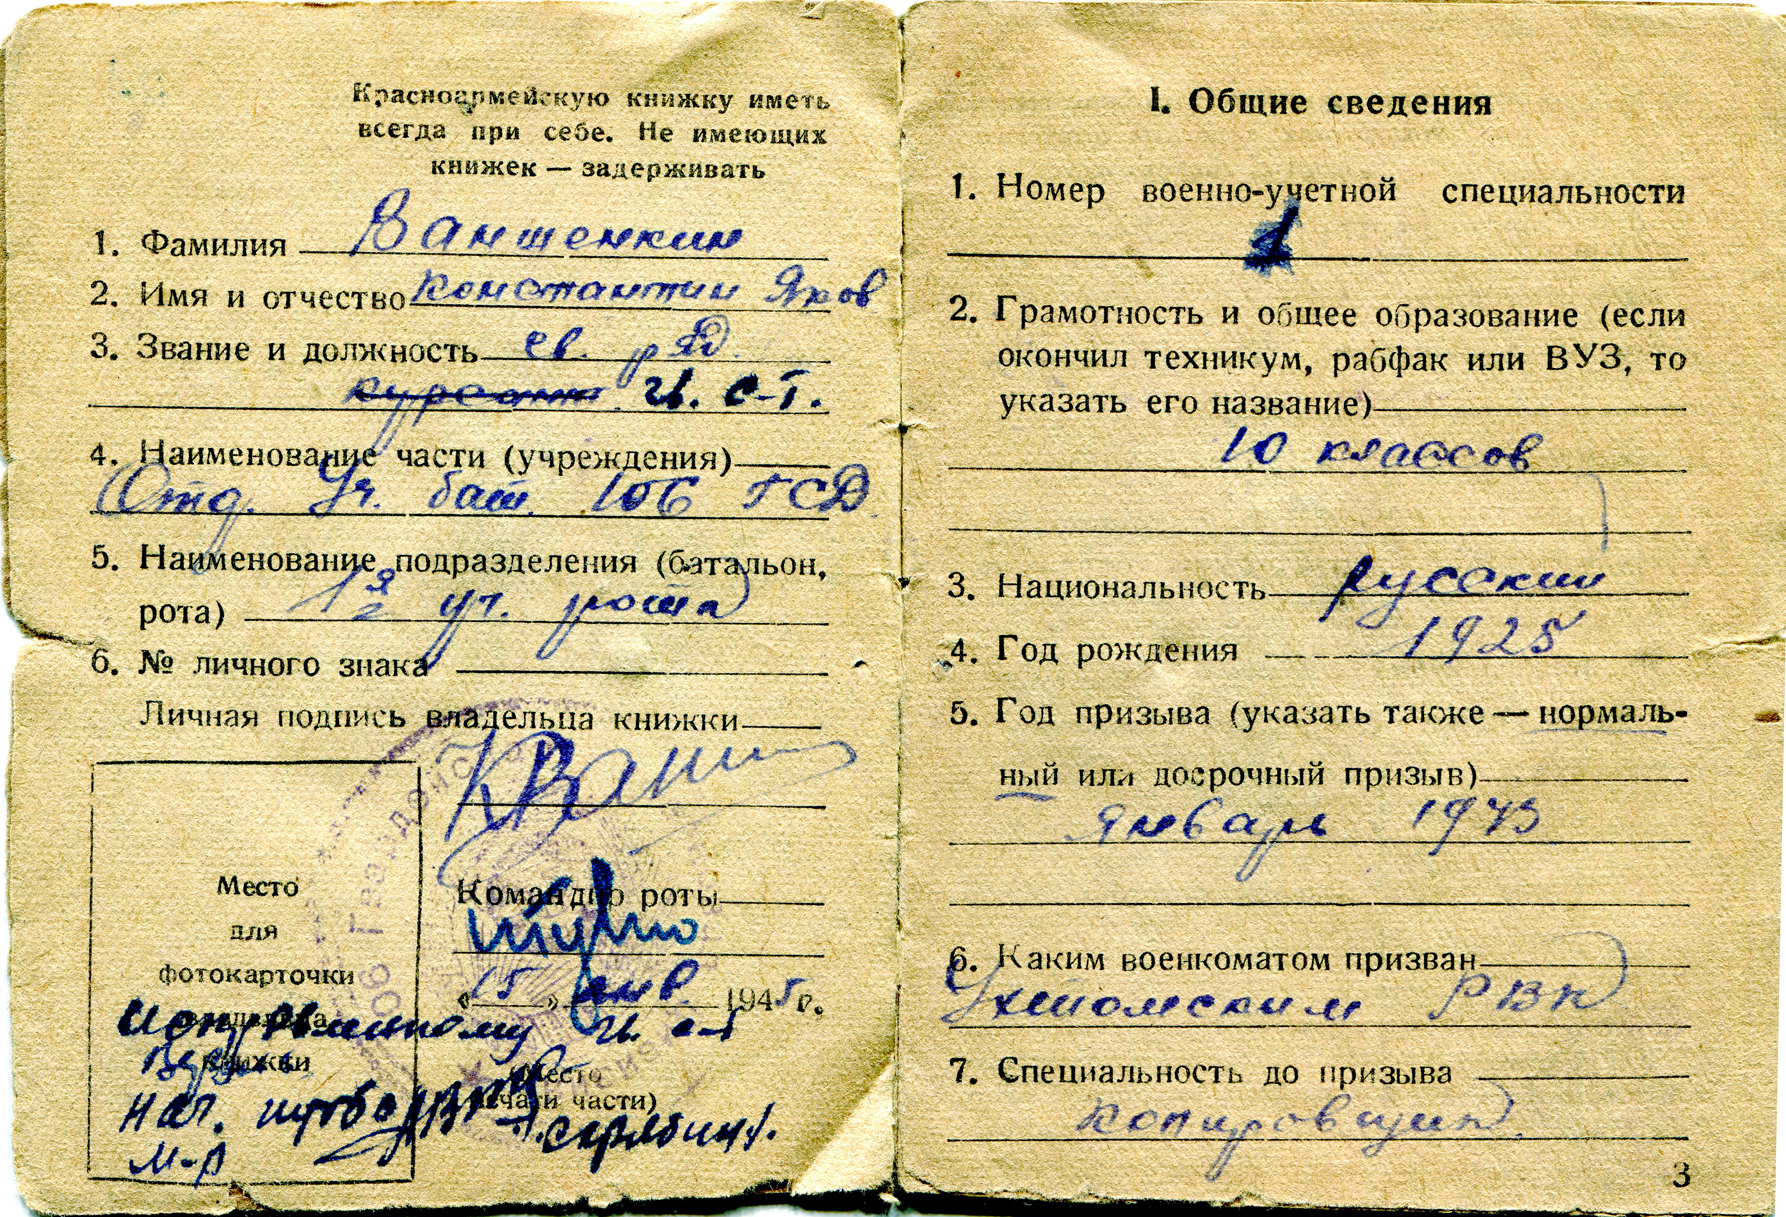 Красноармейскую книжку иметь
всегда при себе. Не имеющих
книжек — задерживать
1. Фамилия Ваншенкин
2. Имя и отчество Константин Яков
3. Звание и должность гв. ряд.
курсант гв. с-т.
4. Наименование части (учреждения)
Отд. Уч. бат. 106 ГСД
5. Наименование подразделения (батальон,
рота) 1я уч. рота
6. № личного знака
Личная подпись владельца книжки
КВанш
Командир роты
«15» янв. 1945 г.
Место
для
фотокарточки
владельца
книжки
(Место
печати части)
Исправленному гв. с-т
верить
Нач. штаба
М-р Скрябин
106 Гвардейск
I. Общие сведения
1. Номер военно-учетной специальности
1
2. Грамотность и общее образование (если
окончил техникум, рабфак или ВУЗ, то
указать его название)
10 классов
3. Национальность русский
4. Год рождения 1925
5. Год призыва (указать также — нормаль-
ный или досрочный призыв)
Январь 1943
6. Каким военкоматом призван
Ухтомским РВК
7. Специальность до призыва
копировщик
3